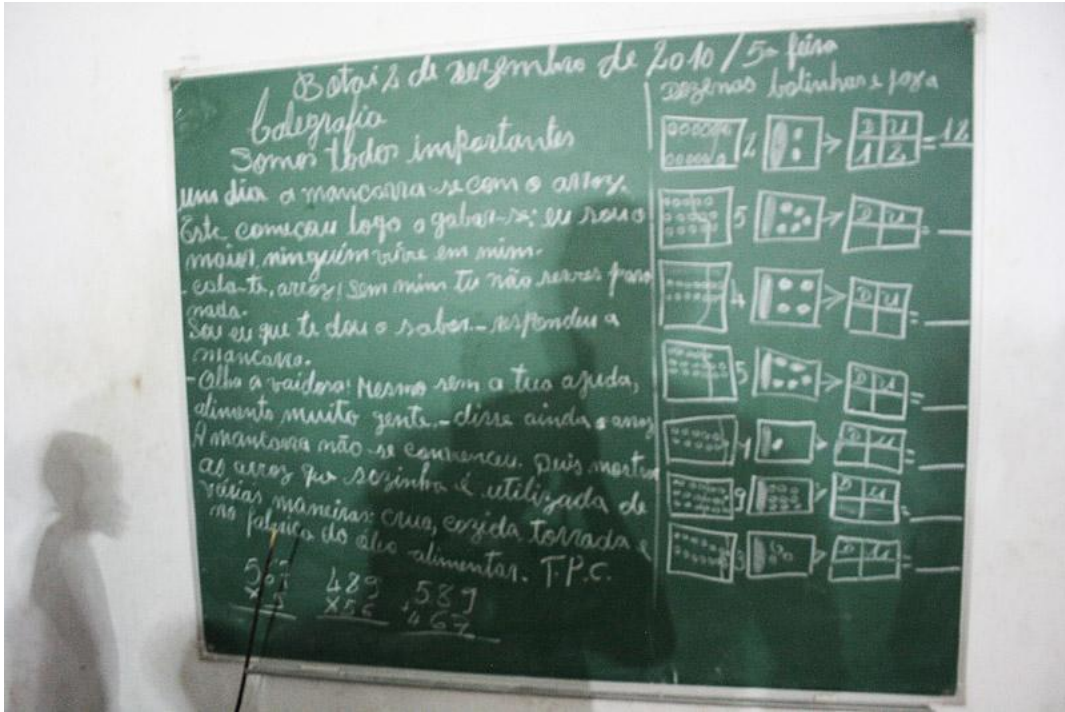 Botai 2 de dezembro de 2010/5ª feira
Caligrafia
Somos todos importantes
um dia a mancarra-se com o arroz.
Este começou logo a gabar-se: eu sou o
maior ninguém vive em mim.
- cala-te, arroz! Sem mim tu não serves para
nada.
Sou eu que te dou o sabor - respondeu a
mancarra.
- Olha a vaidosa! Mesmo sem a tua ajuda,
alimento muito gente - disse ainda o arroz
A mancarra não se convenceu. Quis mostrar
ao arroz que sozinha é utilizada de
várias maneiras: crua, cozida torrada e
no fabrico do óleo alimentar. T.P.C.
489
X56
589
+467
Dezenas bolinhas e faza
2 D U 1 2 = 12
5 D U =
4 D U =
5 D U =
1 D U =
9 D U =
3 D U =